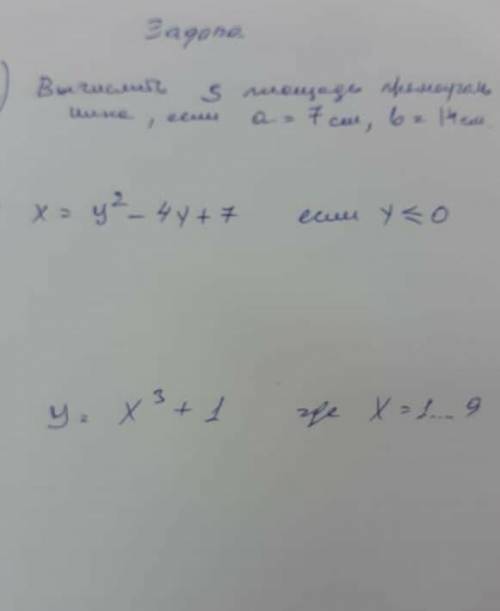 Задача.
) Вычислить S площадь прямоуголь
ника, если a = 7 см, b = 14 см
x = y² - 4y + 7 если y ≤ 0
y = x³ + 1 где x = 1...9